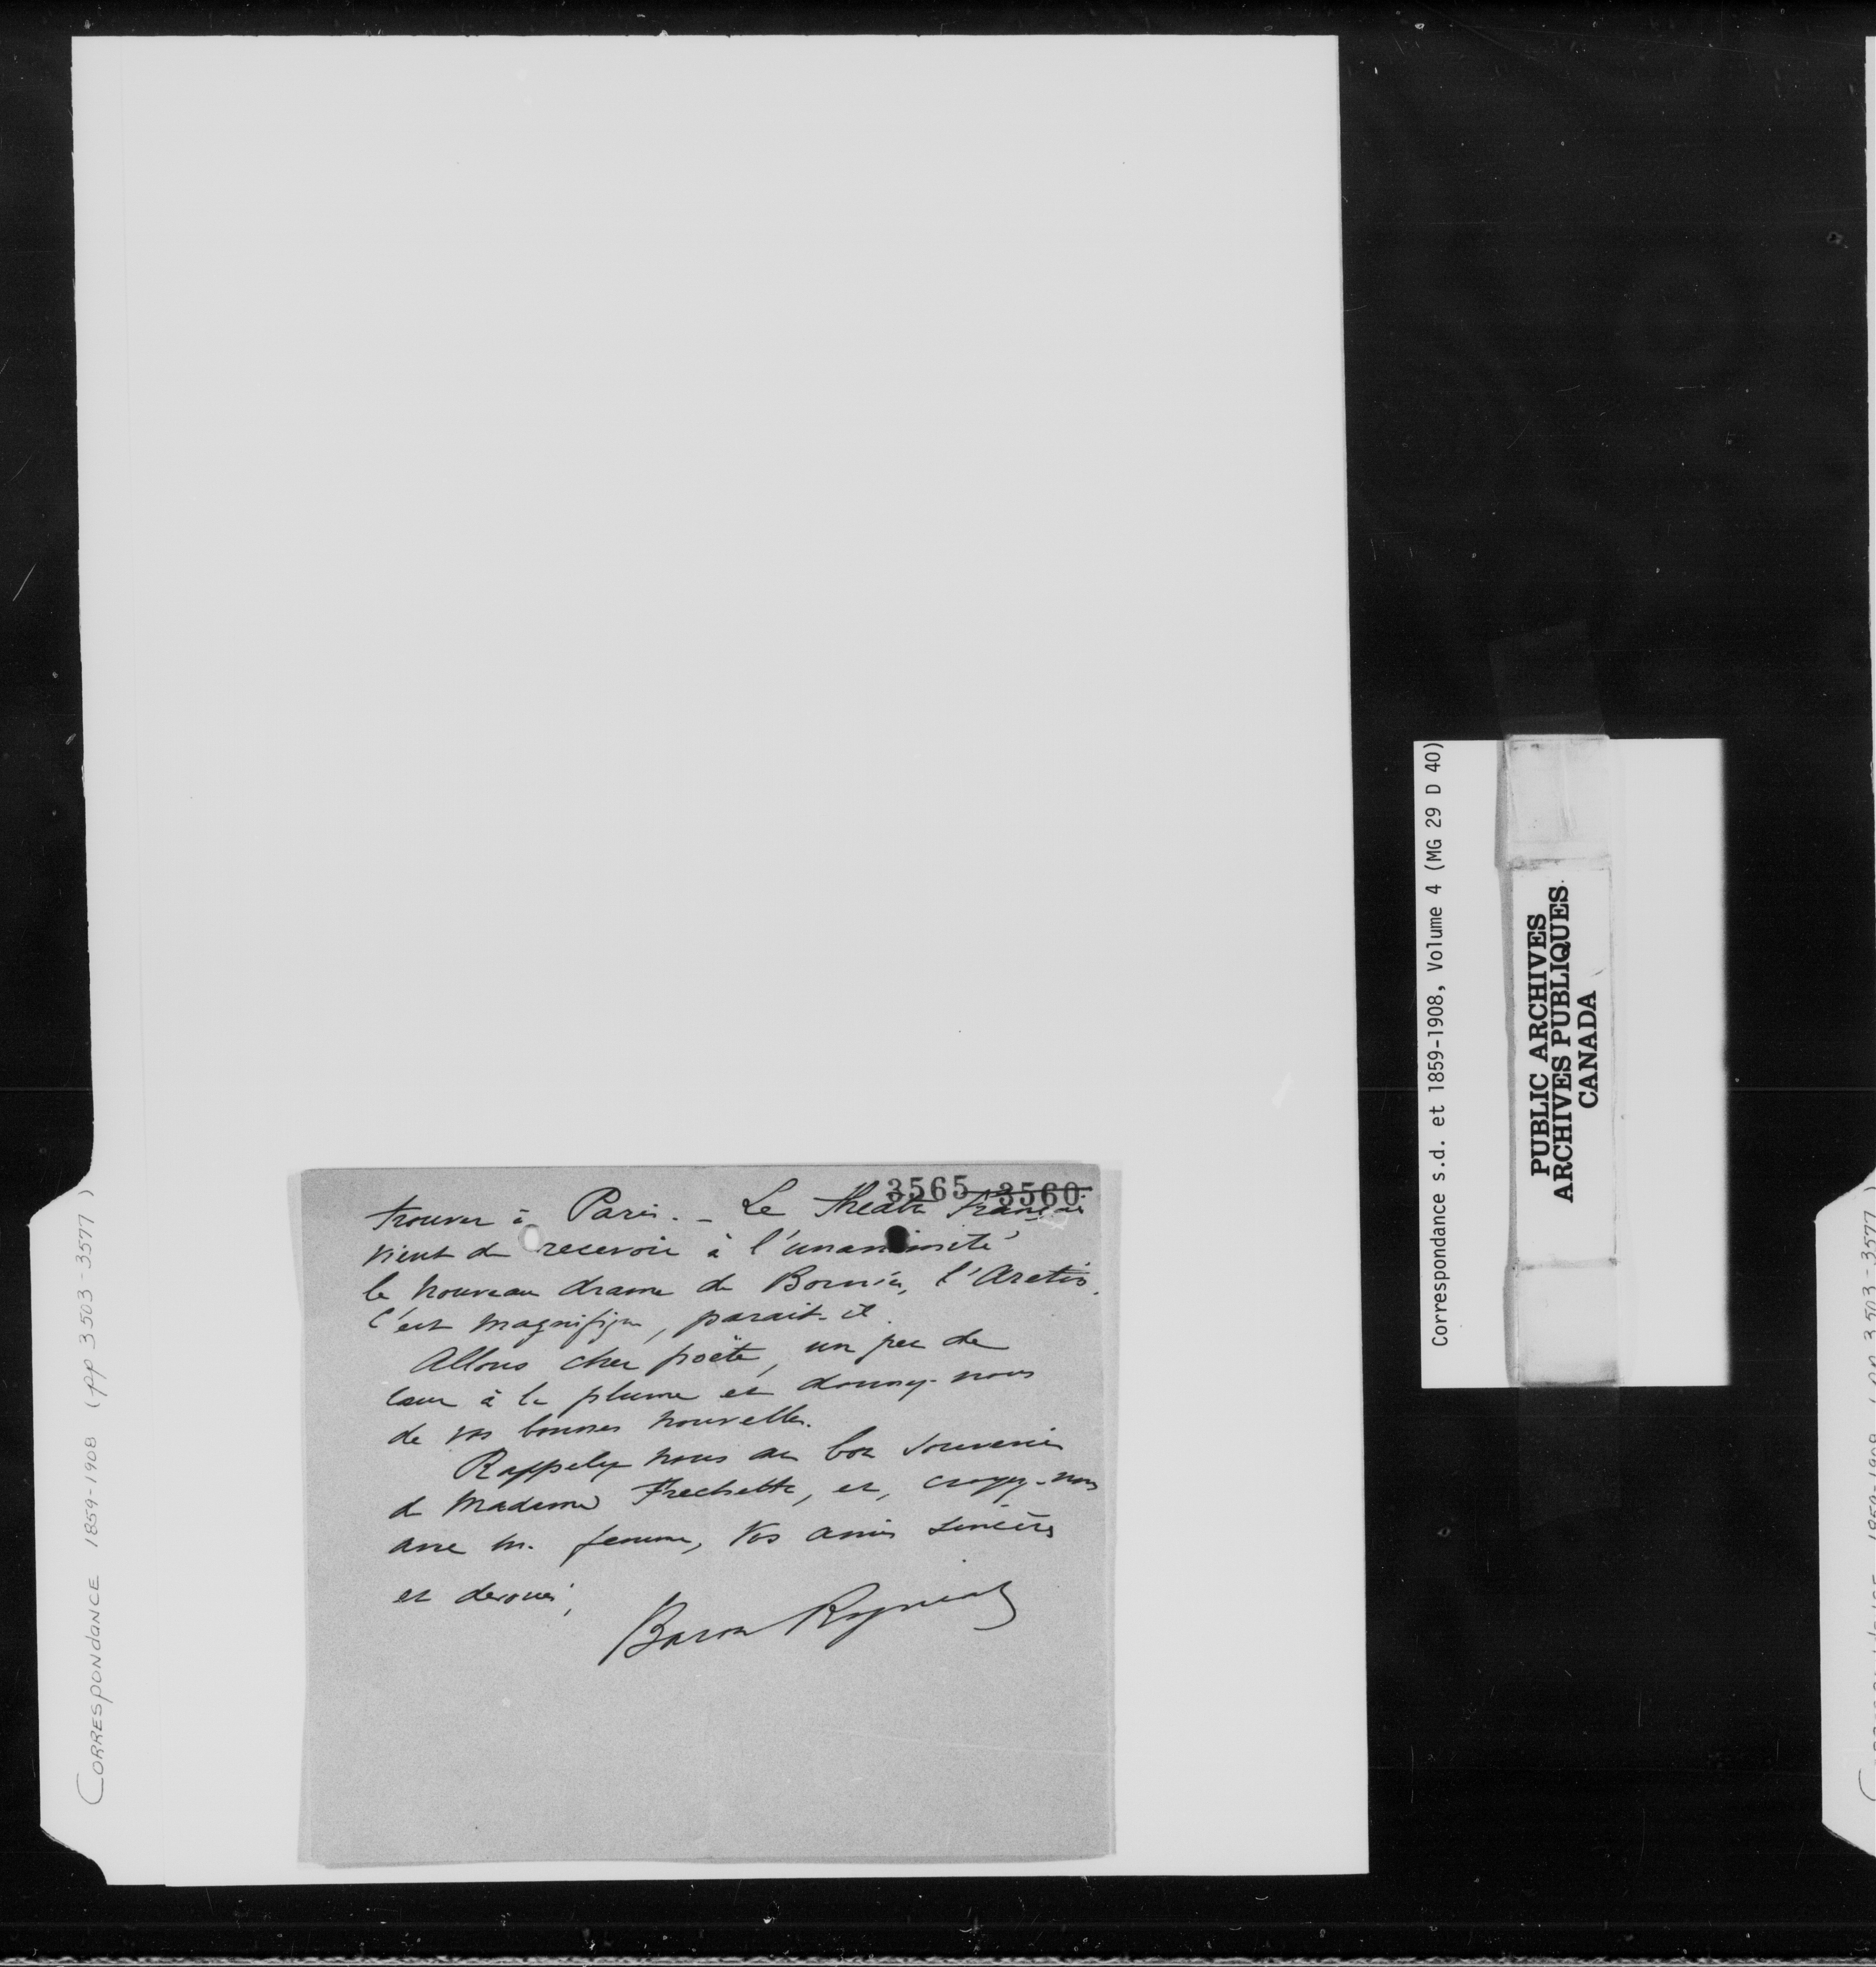 3565 3560
trouver à Paris. - Le théâtre Français
vient de recevoir à l'unanimité
le nouveau drame de Bornier, l'Arétin.
C'est magnifique, parait-il.
Allons cher poëte, un peu de
cœur à la plume et donnez-nous
de vos bonnes nouvelles.
Rappelez nous au bon souvenir
de Madame Frechette, et, croyez-nous
avec ma femme, vos amis sincères
et devoués,
Baron
CORRESPONDANCE 1859-1908 (pp 3503-3577)
Correspondance s.d. et 1859-1908, Volume 4 (MG 29 D 40)
PUBLIC ARCHIVES
ARCHIVES PUBLIQUES
CANADA